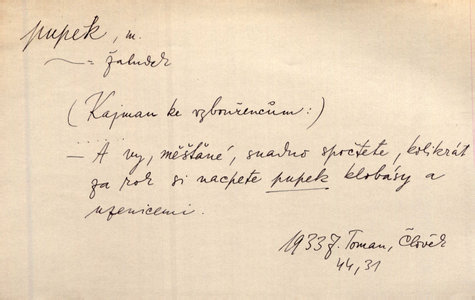 pupek, m.
~ = žaludek
(Kajman ke vzbouřencům:)
– A vy, měšťáné, snadno spočtete, kolikrát
za rok si nacpete pupek klobásy a
uzenicemi.
1933 J. Toman, Člověk
44, 31